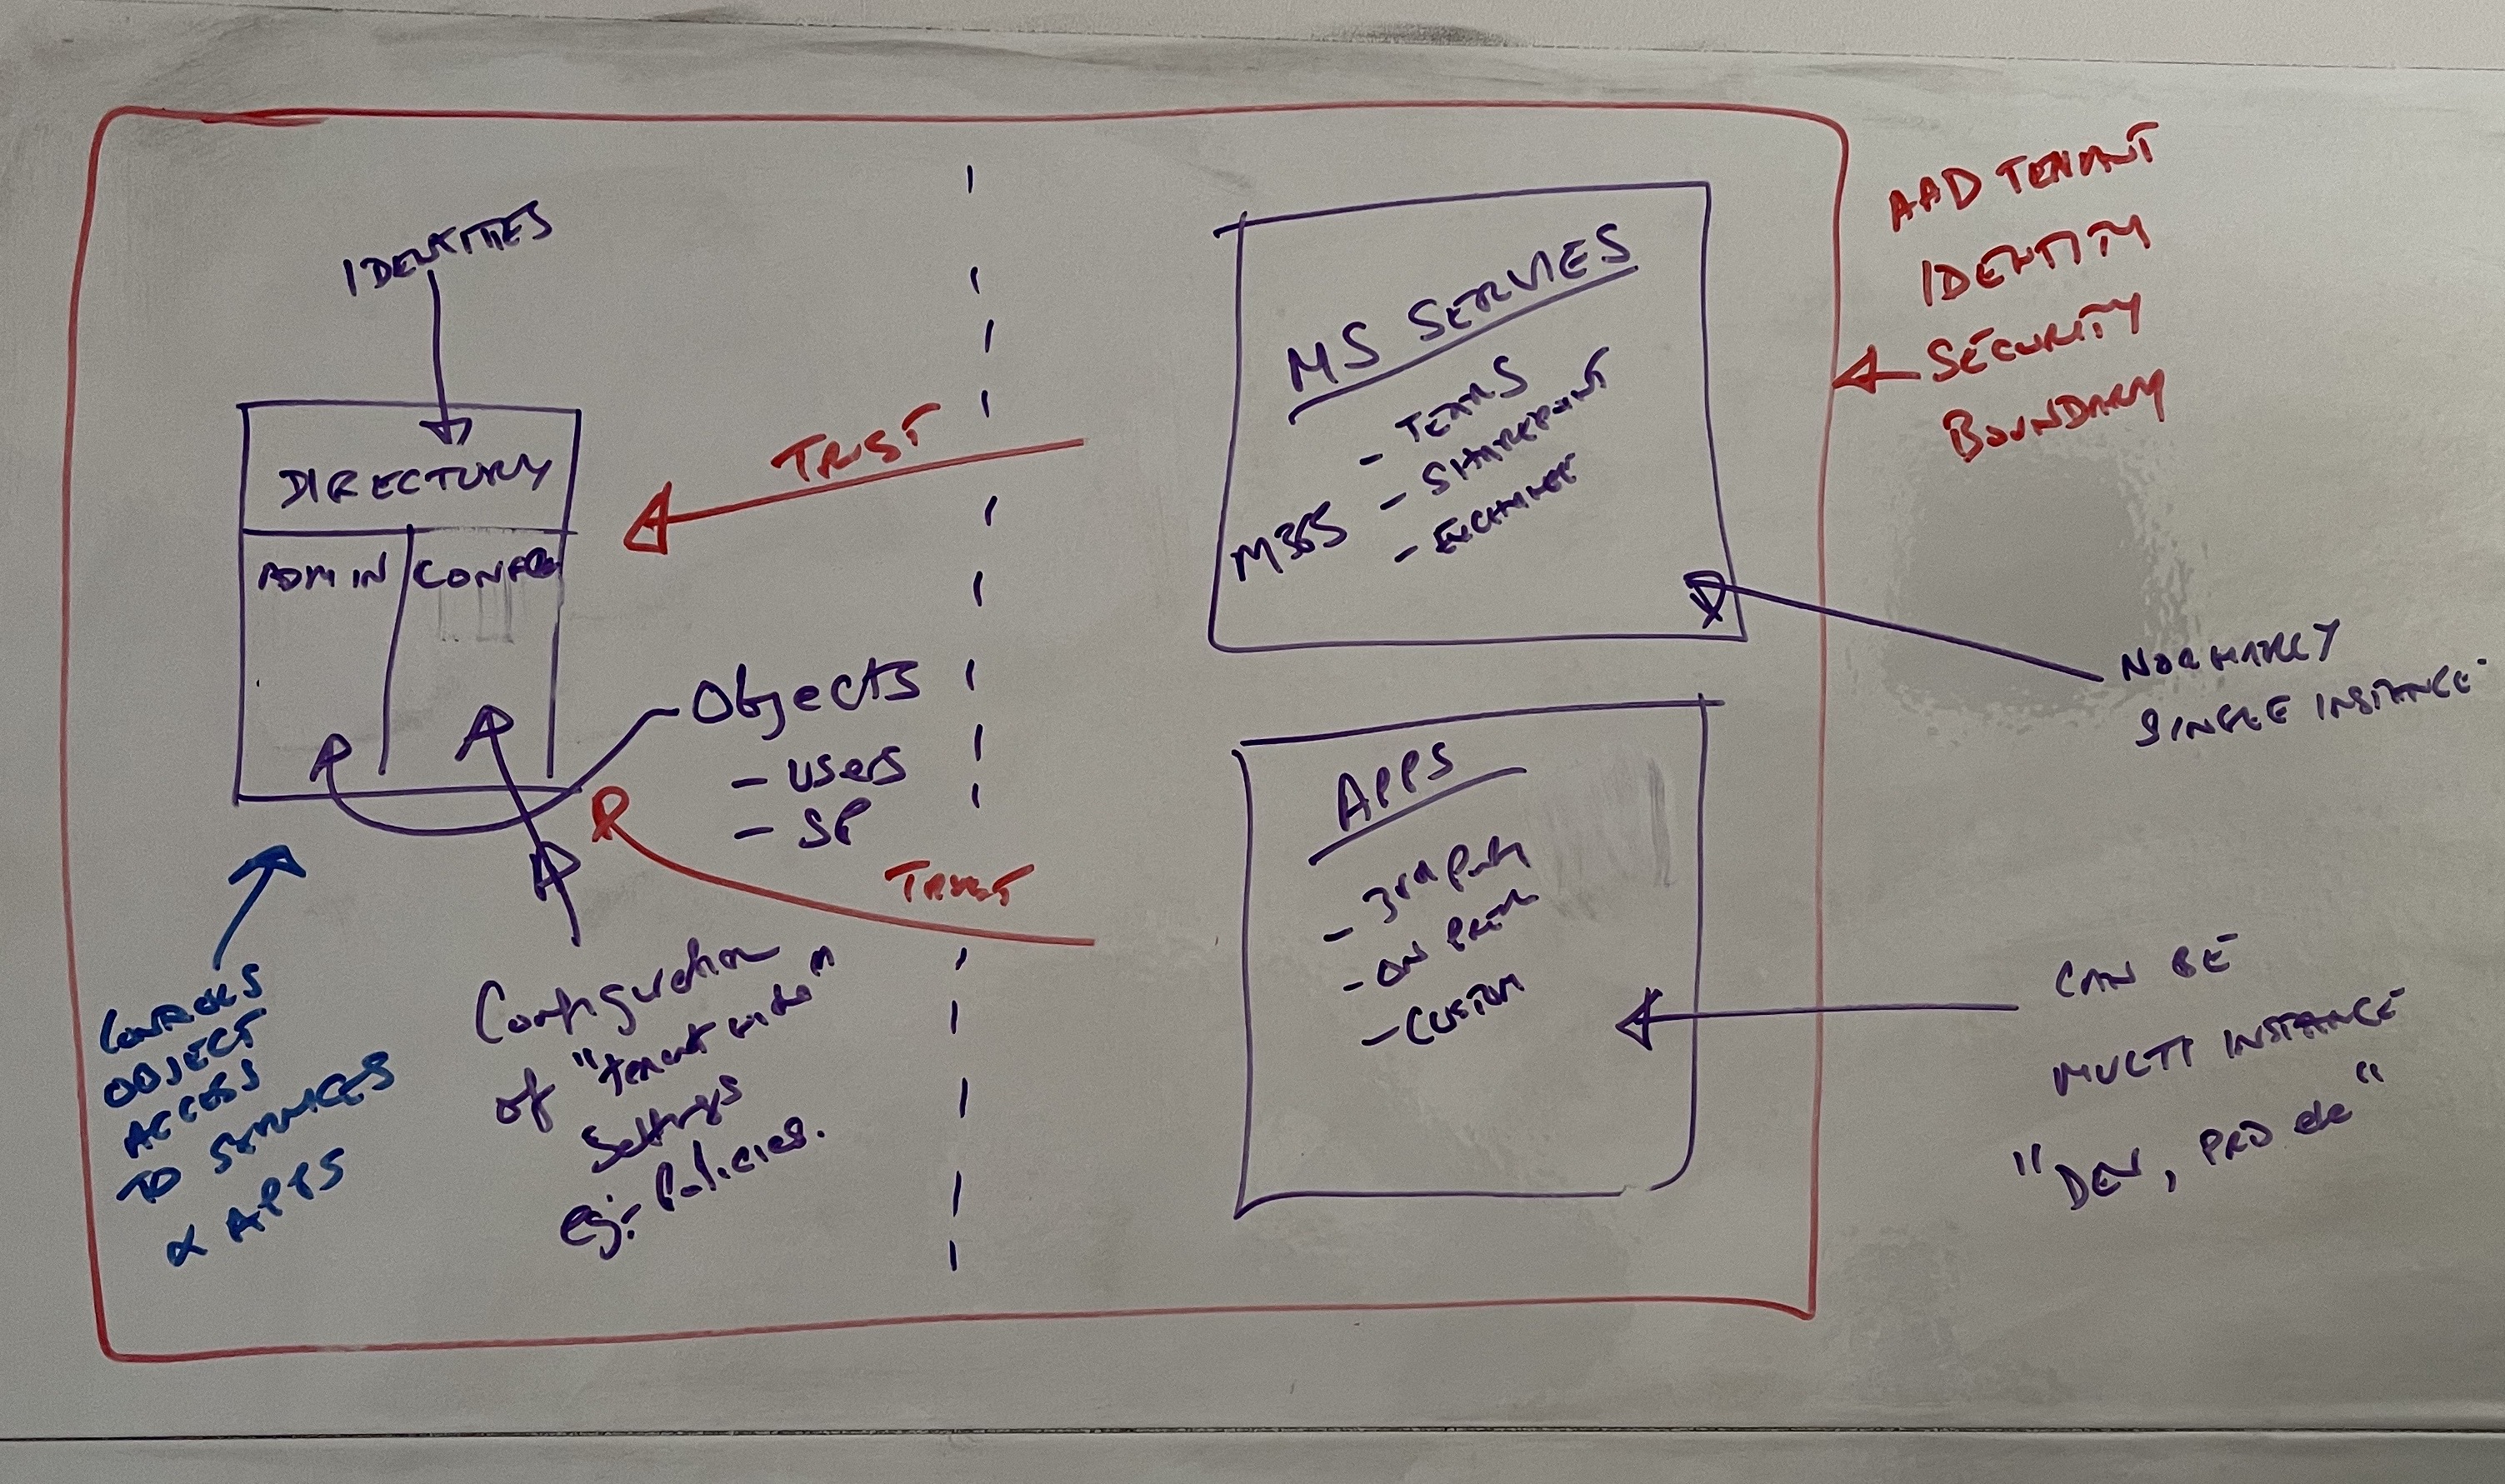 IDENTITIES
DIRECTORY
ADMIN
CONFIG
TRUST
Objects
- users
- SP
TRUST
CONTROLS
OBJECT
ACCESS
TO SERVICES
& APPS
Configuration
of "tenant wide"
Settings
eg:- Policies.
MS SERVIES
- TEAMS
M365 - SHAREPOINT
- EXCHANGE
APPS
- 3rd Party
- ON PREM
- CUSTOM
AAD TENANT
IDENTITY
SECURITY
BOUNDARY
NORMALLY
SINGLE INSTANCE
CAN BE
MULTI INSTANCE
"DEV, PRD etc"